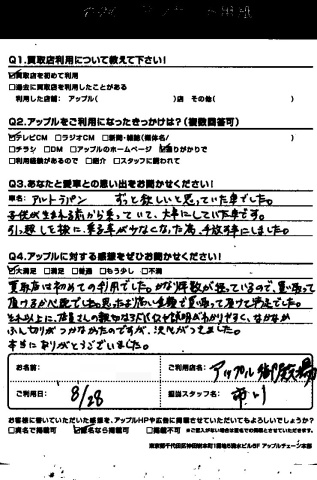 Q1.買取店利用について教えて下さい!
☑買取店を初めて利用
□過去に買取店を利用したことがある
利用した店舗: アップル( )店 その他( )
Q2.アップルをご利用になったきっかけは?(複数回答可)
☑テレビCM □ラジオCM □新聞・雑誌(媒体名/ )
□チラシ □DM □アップルのホームページ ☑通りがかりで
□利用経験があるので □紹介 □スタッフに誘われて
Q3.あなたと愛車との思い出をお聞かせください!
車名: アルトラパン ずっと欲しいと思っていた車でした。
子供が生まれる前から乗っていて、大事にしていた車です。
引っ越しを機に、乗る事が少なくなった為、手放す事にしました。
Q4.アップルに対する感想をぜひお聞かせください!
☑大満足 □満足 □普通 □もう少し □不満
買取店は初めての利用でした。かなり年数が経っているので、買い取って
頂けるか心配でした。思ったより高い金額で買い取って頂けて満足でした。
それ以上に、店員さんの親切な対応や説明がわかりやすく、なかなか
ふん切りがつかなかったのですが、決心がつきました。
本当にありがとうございました。
お名前:
ご利用店名: アップル御殿場
ご利用日: 8/28
担当スタッフ名: 市川
お客様に書いていただいた感想を、アップルHPや広告に掲載させていただいてもよろしいでしょうか?
□実名で掲載可 ☑匿名なら掲載可 □掲載不可 ※ご記入がない場合は匿名での掲載とさせていただきます。
東京都千代田区神田錦木町1番地6清水ビル5F アップルチェーン本部